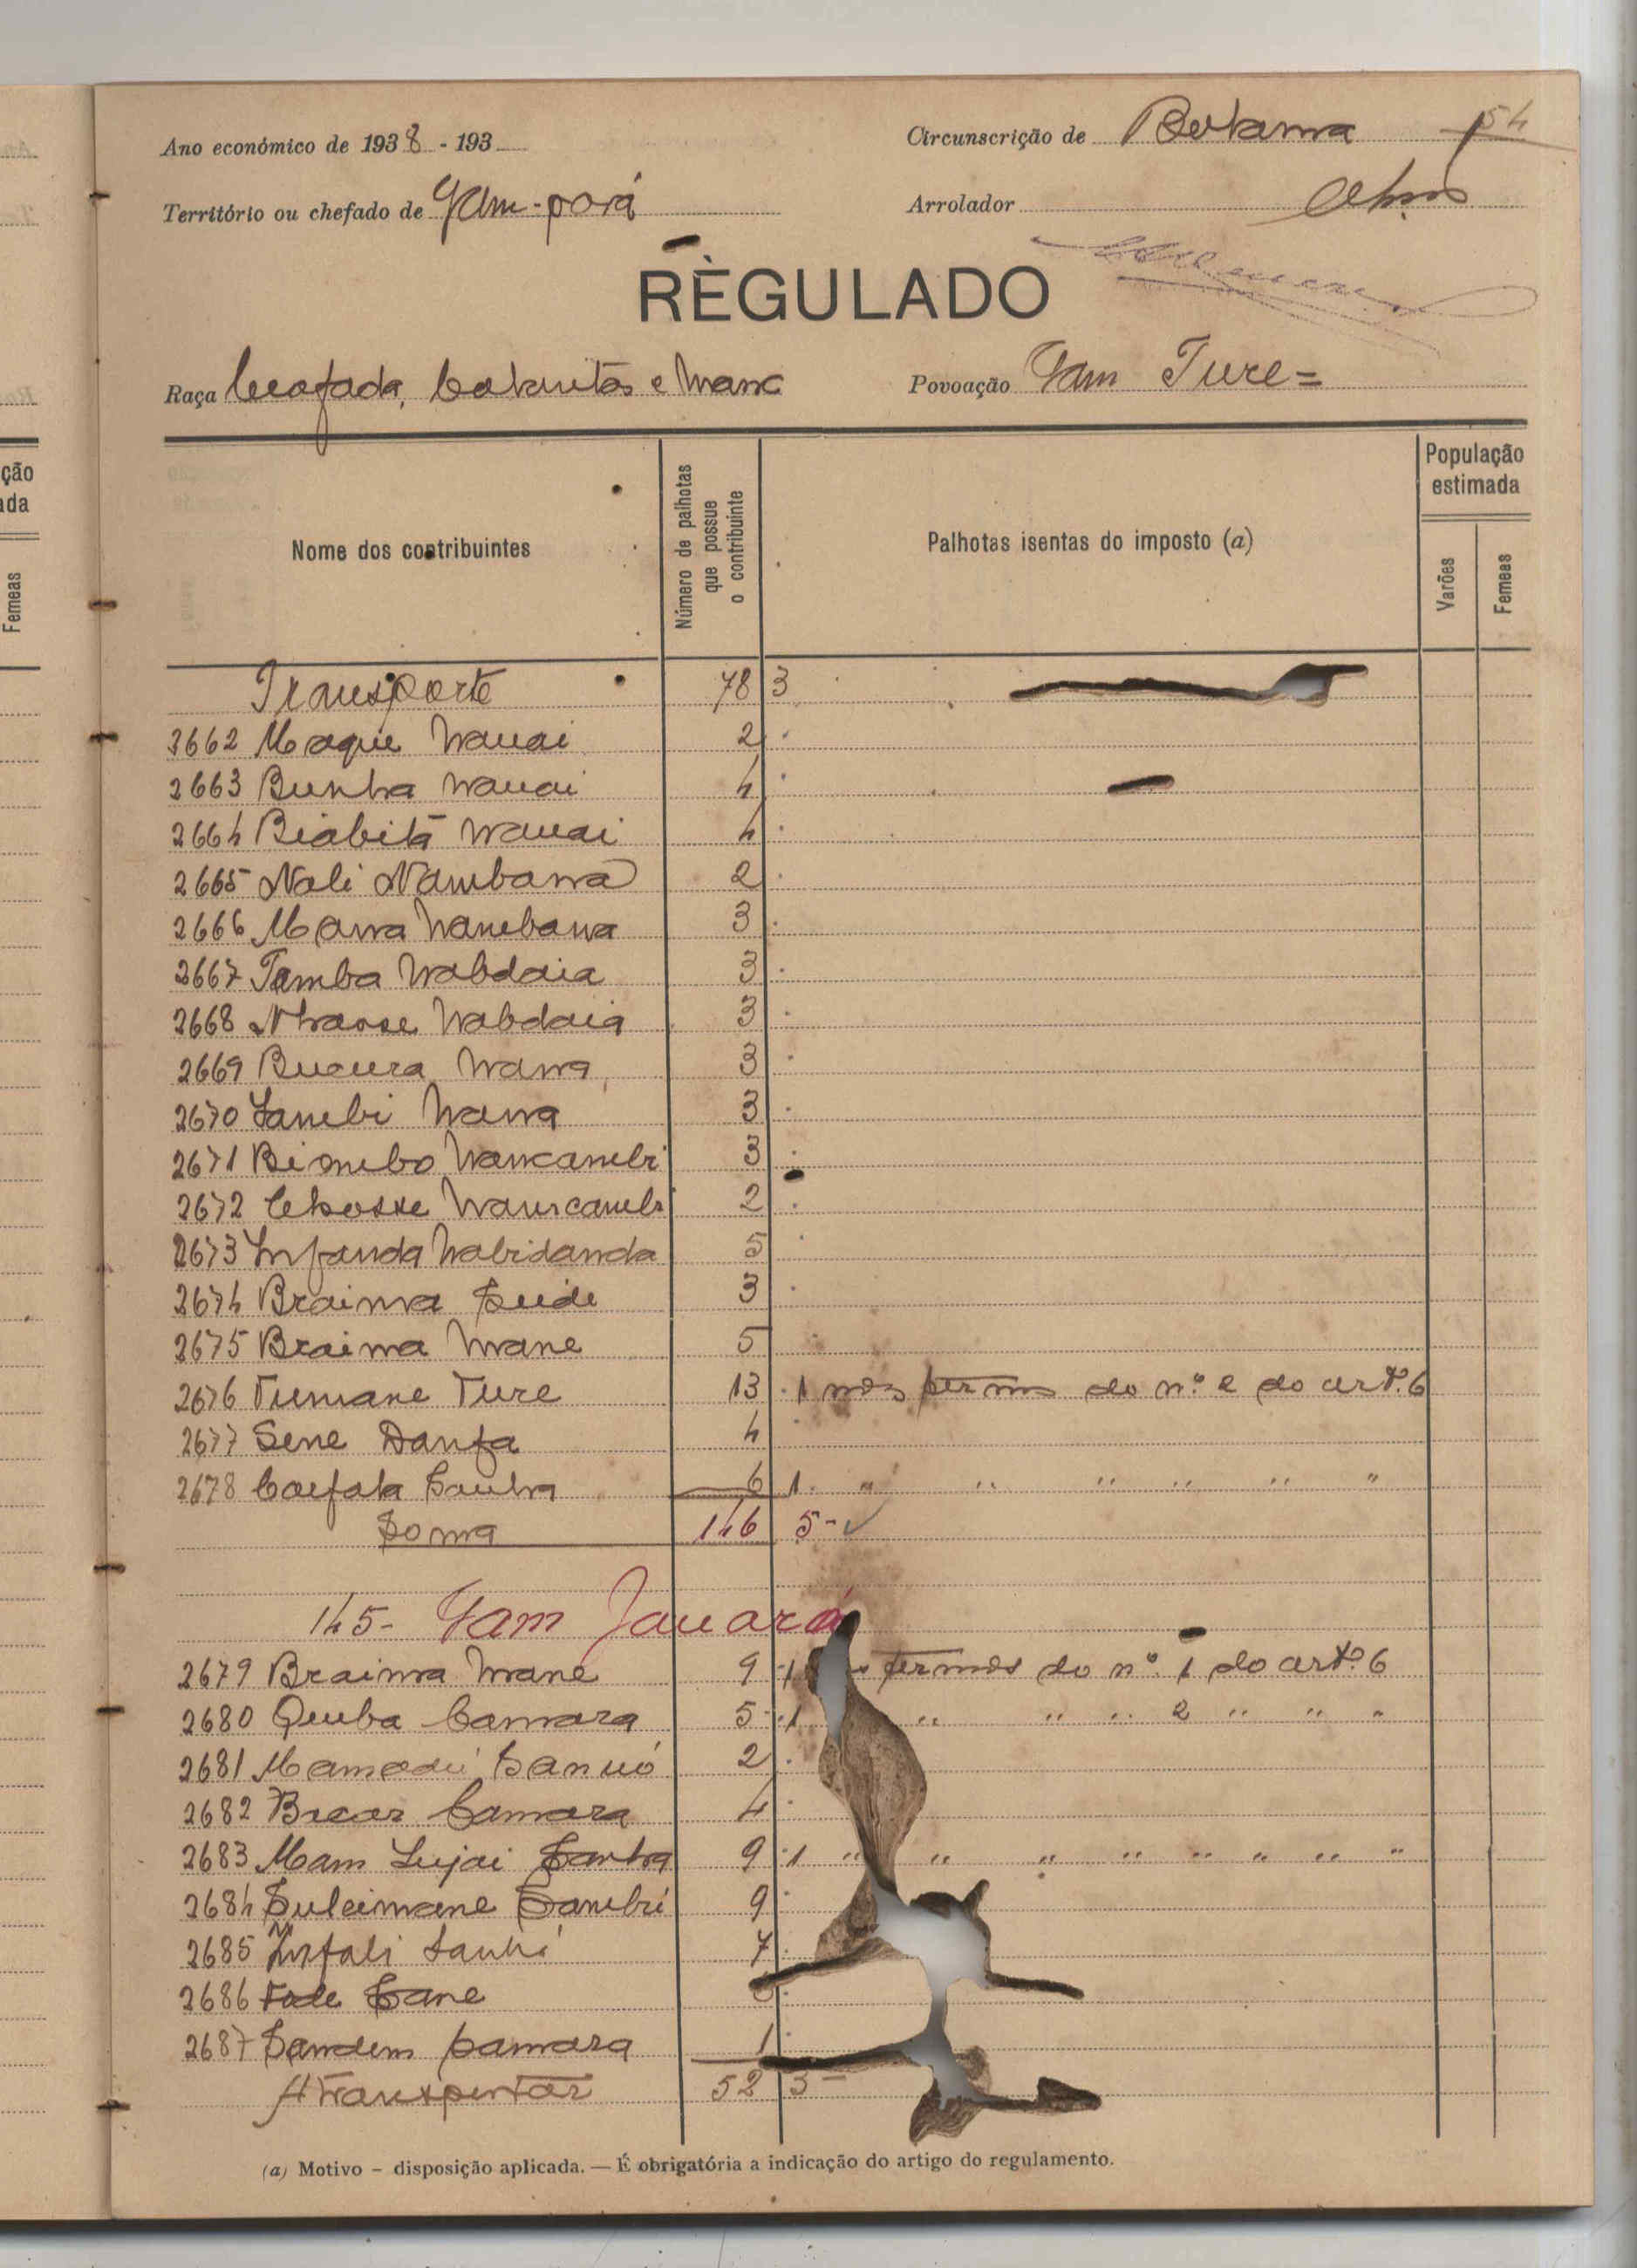 Ano económico de 1938 - 193
Circunscrição de Bolama 54
Território ou chefado de Gam-pará
Arrolador
RÈGULADO
Raça Beafada, Povoação Gam Ture=
Nome dos contribuintes
Número de palhotas que possue o contribuinte
Palhotas isentas do imposto (a)
População estimada
Varões
Femeas
Transporte 78 3
2662 Maque Nauai 2
2663 Bunha Nauai 4
2664 Biabitã Nauai 4
2665 Nali Nambana 2
2666 Mana Nambana 3
2667 Tamba Nabdaia 3
2668 Nhasse Nabdaia 3
2669 Bucura Nana 3
2670 Sambi Nana 3
2671 Biombo Nancambi 3
2672 Nancambi 2
2673 Infanda Nabidanda 5
2674 Braima Seide 3
2675 Braima Mane 5
2676 Tumane Ture 13 1 nos termos do nº 2 do artº. 6
2677 Sene Danfa 4
2678 Sanha 6 1 " " " " " "
Soma 146 5-
145- Gam Januará
2679 Braima Mane 9 1 termos do nº. 1 do artº. 6
2680 Queba Camara 5 1 " " " 2 " " "
2681 Mamadú Sanuó 2
2682 Bacar Camara 4
2683 Mam Lujai Sanha 9 1 " " " " " " " "
2684 Suleimane Sambú 9
2685 Infali Sanhá 7
2686 Fode Sane
2687 Sandem Camara 1
A transportar 52 3-
(a) Motivo – disposição aplicada. — É obrigatória a indicação do artigo do regulamento.
ção
ada
Femeas